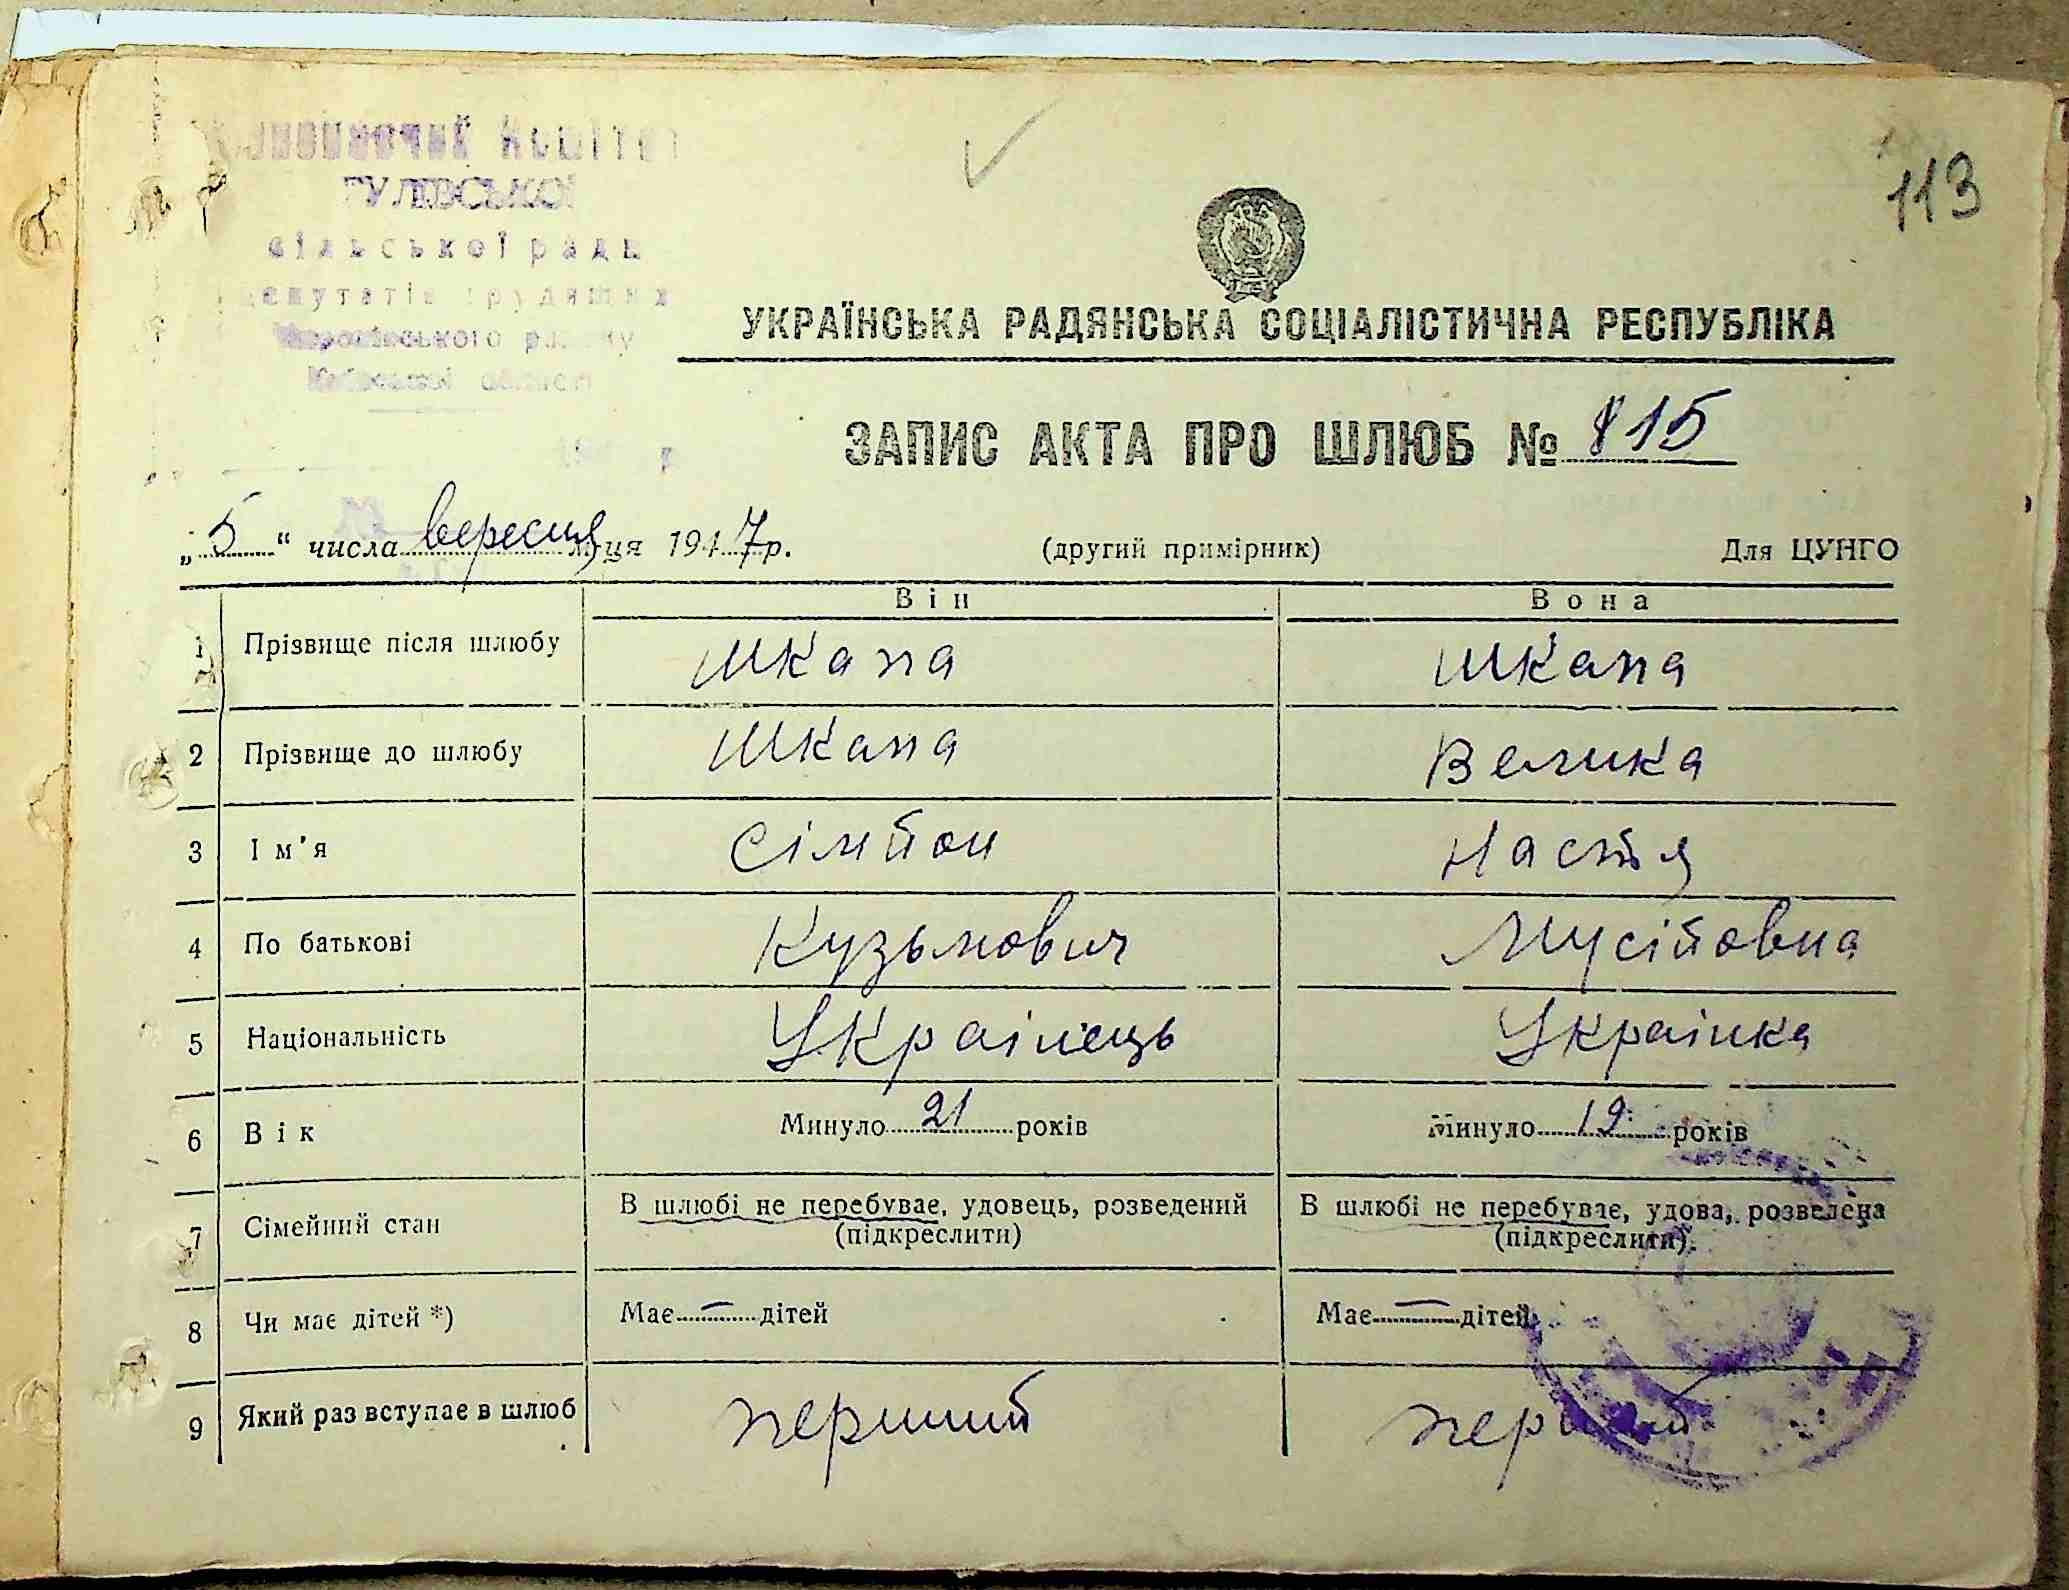 113
ГУЛІВСЬКОЇ
сільської ради
депутатів трудящих
району
Київської області
УКРАЇНСЬКА РАДЯНСЬКА СОЦІАЛІСТИЧНА РЕСПУБЛІКА
ЗАПИС АКТА ПРО ШЛЮБ № 815
„5“ числа вересня м-ця 1947 р. (другий примірник) Для ЦУНГО
Він Вона
1 Прізвище після шлюбу Шкапа Шкапа
2 Прізвище до шлюбу Шкапа Велика
3 Ім'я Сімйон Настя
4 По батькові Кузьмович Мусійовна
5 Національність Украінець Украінка
6 Вік Минуло 21 років Минуло 19 років
7 Сімейний стан В шлюбі не перебуває, удовець, розведений В шлюбі не перебуває, удова, розведена
(підкреслити) (підкреслити).
8 Чи має дітей *) Має — дітей Має — дітей
9 Який раз вступає в шлюб перший перший